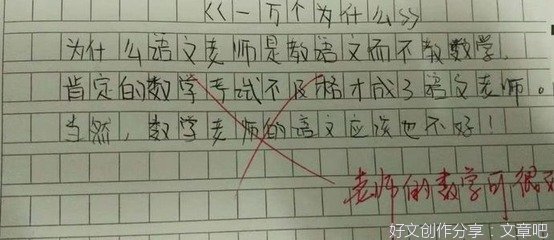 《一万个为什么》
为什么语文老师是教语文而不教数学,
肯定的数学考试不及格才成了语文老师。
当然,数学老师的语文应该也不好!
老师的数学可很
好文创作分享:文章吧